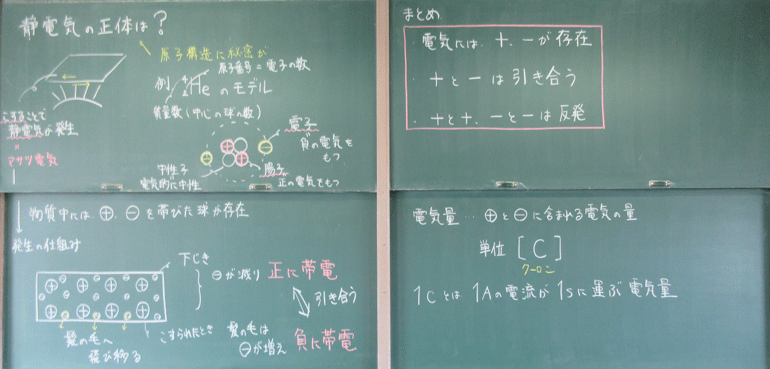 静電気の正体は?
原子構造に秘密が
原子番号=電子の数
例 ⁴₂He のモデル
質量数(中心の球の数)
こすることで
静電気が発生
"
マサツ電気
電子
負の電気を
もつ
中性子
電気的に中性
陽子
正の電気をもつ
物質中には ⊕, ⊖ を帯びた球が存在
発生の仕組み
下じき
⊖が減り 正に帯電
引き合う
髪の毛へ
飛び移る
こすられたとき
髪の毛は
⊖が増え 負に帯電
まとめ
・電気には +, − が存在
・+と−は引き合う
・+と+, −と−は反発
電気量…⊕と⊖に含まれる電気の量
単位 [C]
クーロン
1Cとは 1Aの電流が 1sに運ぶ電気量